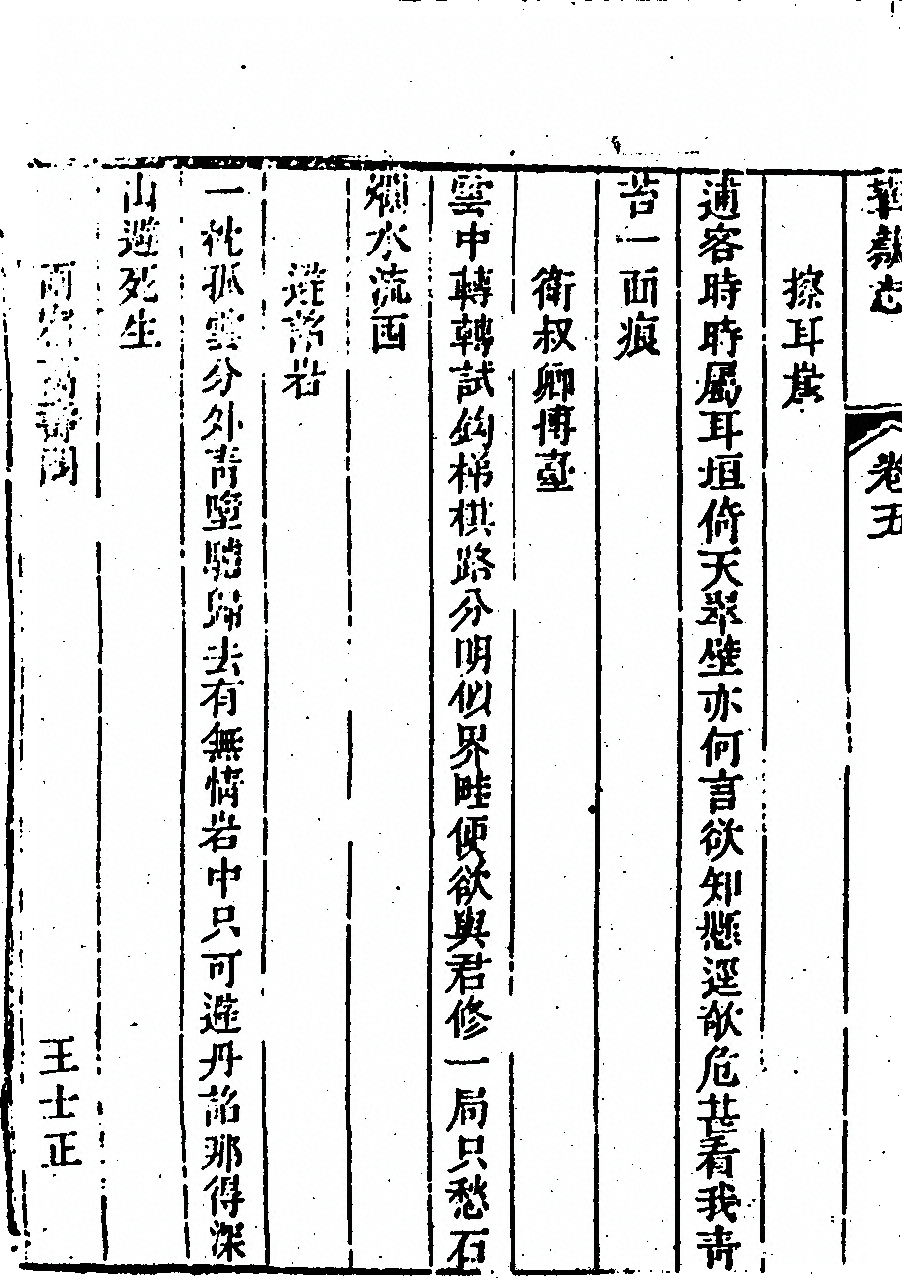 華嶽志 卷五
擦耳崖
逋客時時屬耳垣倚天翠壁亦何言欲知懸逕欹危甚看我青
苔一面痕
衛叔卿博臺
雲中轉轉試鈎梯棋路分明似界畦便欲與君修一局只愁石
爛水流西
避詔岩
一枕孤雲分外青墮驢歸去有無情岩中只可避丹詔那得深
山避死生
雨 王士正